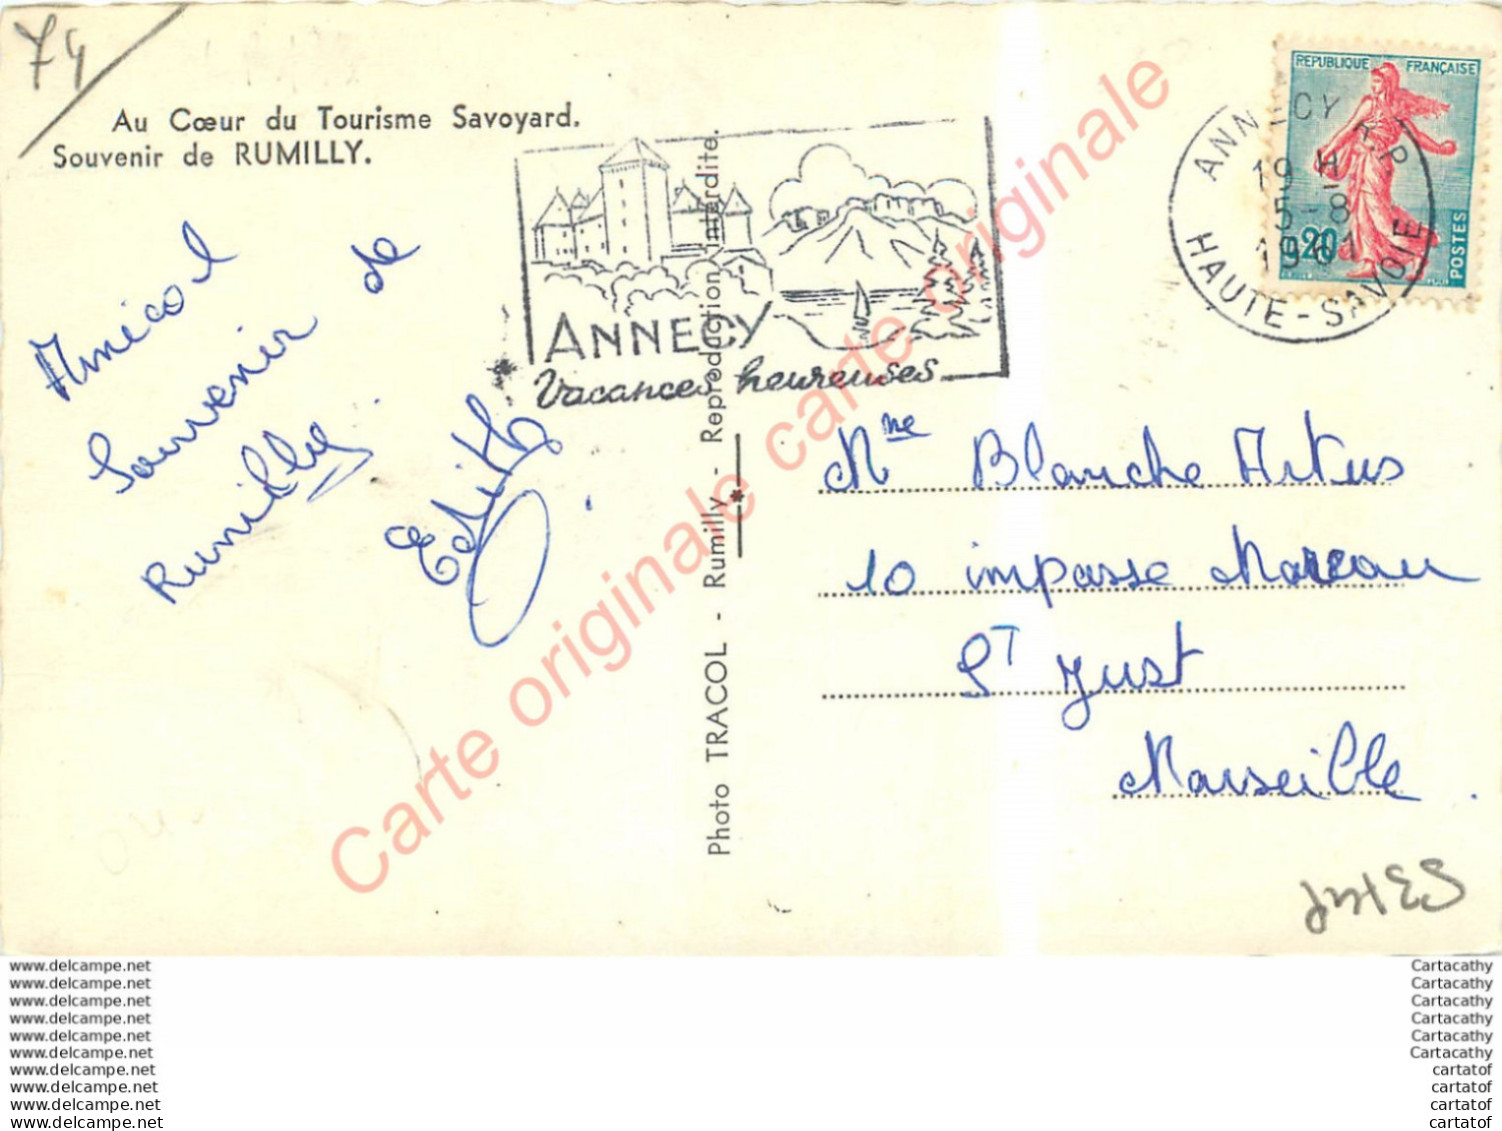 74
Au Cœur du Tourisme Savoyard.
Souvenir de RUMILLY.
Amical
Souvenir de
Rumilly.
Edith
ANNECY
Vacances heureuses
ANNECY R.P
19 H
5-8
1961
HAUTE-SAVOIE
REPUBLIQUE FRANÇAISE
0,20
POSTES
Photo TRACOL - Rumilly - Reproduction interdite.
Mme Blanche Artus
10 impasse Moreau
St Just
Marseille.
Carte originale carte originale
www.delcampe.net
www.delcampe.net
www.delcampe.net
www.delcampe.net
www.delcampe.net
www.delcampe.net
www.delcampe.net
www.delcampe.net
www.delcampe.net
www.delcampe.net
Cartacathy
Cartacathy
Cartacathy
Cartacathy
Cartacathy
Cartacathy
cartatof
cartatof
cartatof
cartatof